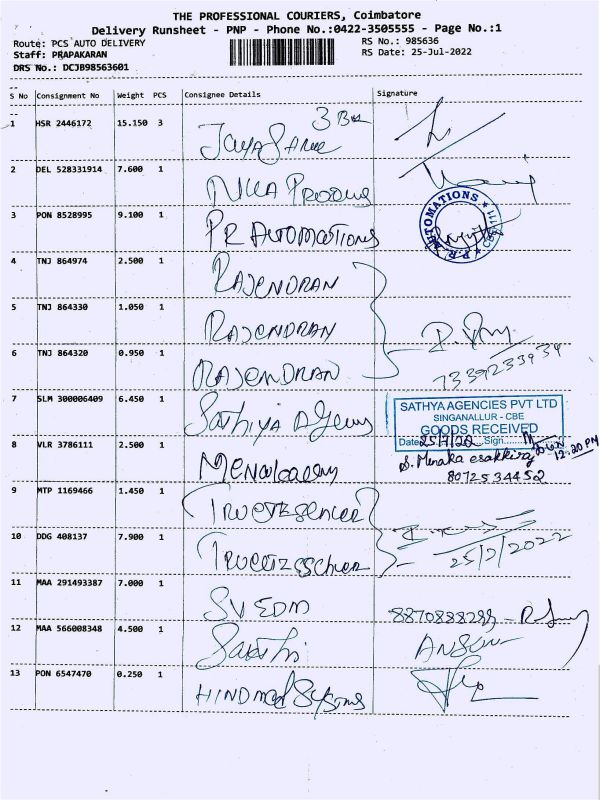 THE PROFESSIONAL COURIERS, Coimbatore
Delivery Runsheet - PNP - Phone No.:0422-3505555 - Page No.:1
Route: PCS AUTO DELIVERY
RS No.: 985636
Staff: PRAPAKARAN
RS Date: 25-Jul-2022
DRS No.: DCJB98563601
S No Consignment No Weight PCS Consignee Details Signature
1 HSR 2446172 15.150 3
2 DEL 528331914 7.600 1
3 PON 8528995 9.100 1 PR AUTOMATIONS
P.R. AUTOMATIONS CBE
4 TNJ 864974 2.500 1 RAJENDRAN
5 TNJ 864330 1.050 1 RAJENDRAN
6 TNJ 864320 0.950 1 RAJENDRAN
7339233934
7 SLM 300006409 6.450 1 Sathiya Agency
SATHYA AGENCIES PVT LTD
SINGANALLUR - CBE
GOODS RECEIVED
Date 25/7/22 Sign
12:20 PM
8 VLR 3786111 2.500 1
S. Menaka esakkiraj
8072534452
9 MTP 1169466 1.450 1
10 DDG 408137 7.900 1
25/7/2022
11 MAA 291493387 7.000 1 SV EDM
12 MAA 566008348 4.500 1 Sakthi
13 PON 6547470 0.250 1